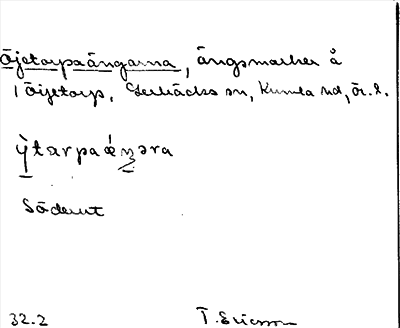 Öjetorpaängarna, ängsmarker å
1 Öijetorp, Gerbäcks sn, Kumla hd, Ör. l.
ỳtarpaǽŋəra
Söderut
32.2 T. Ericsson